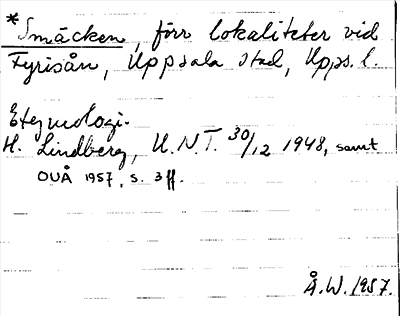 *Smäcken, förr lokaliteter vid
Fyrisån, Uppsala stad, Upps. l.
Etymologi.
H. Lindberg, U.N.T. 30/12 1948, samt
OUÅ 1957, s. 3 ff.
Å.W. 1957.